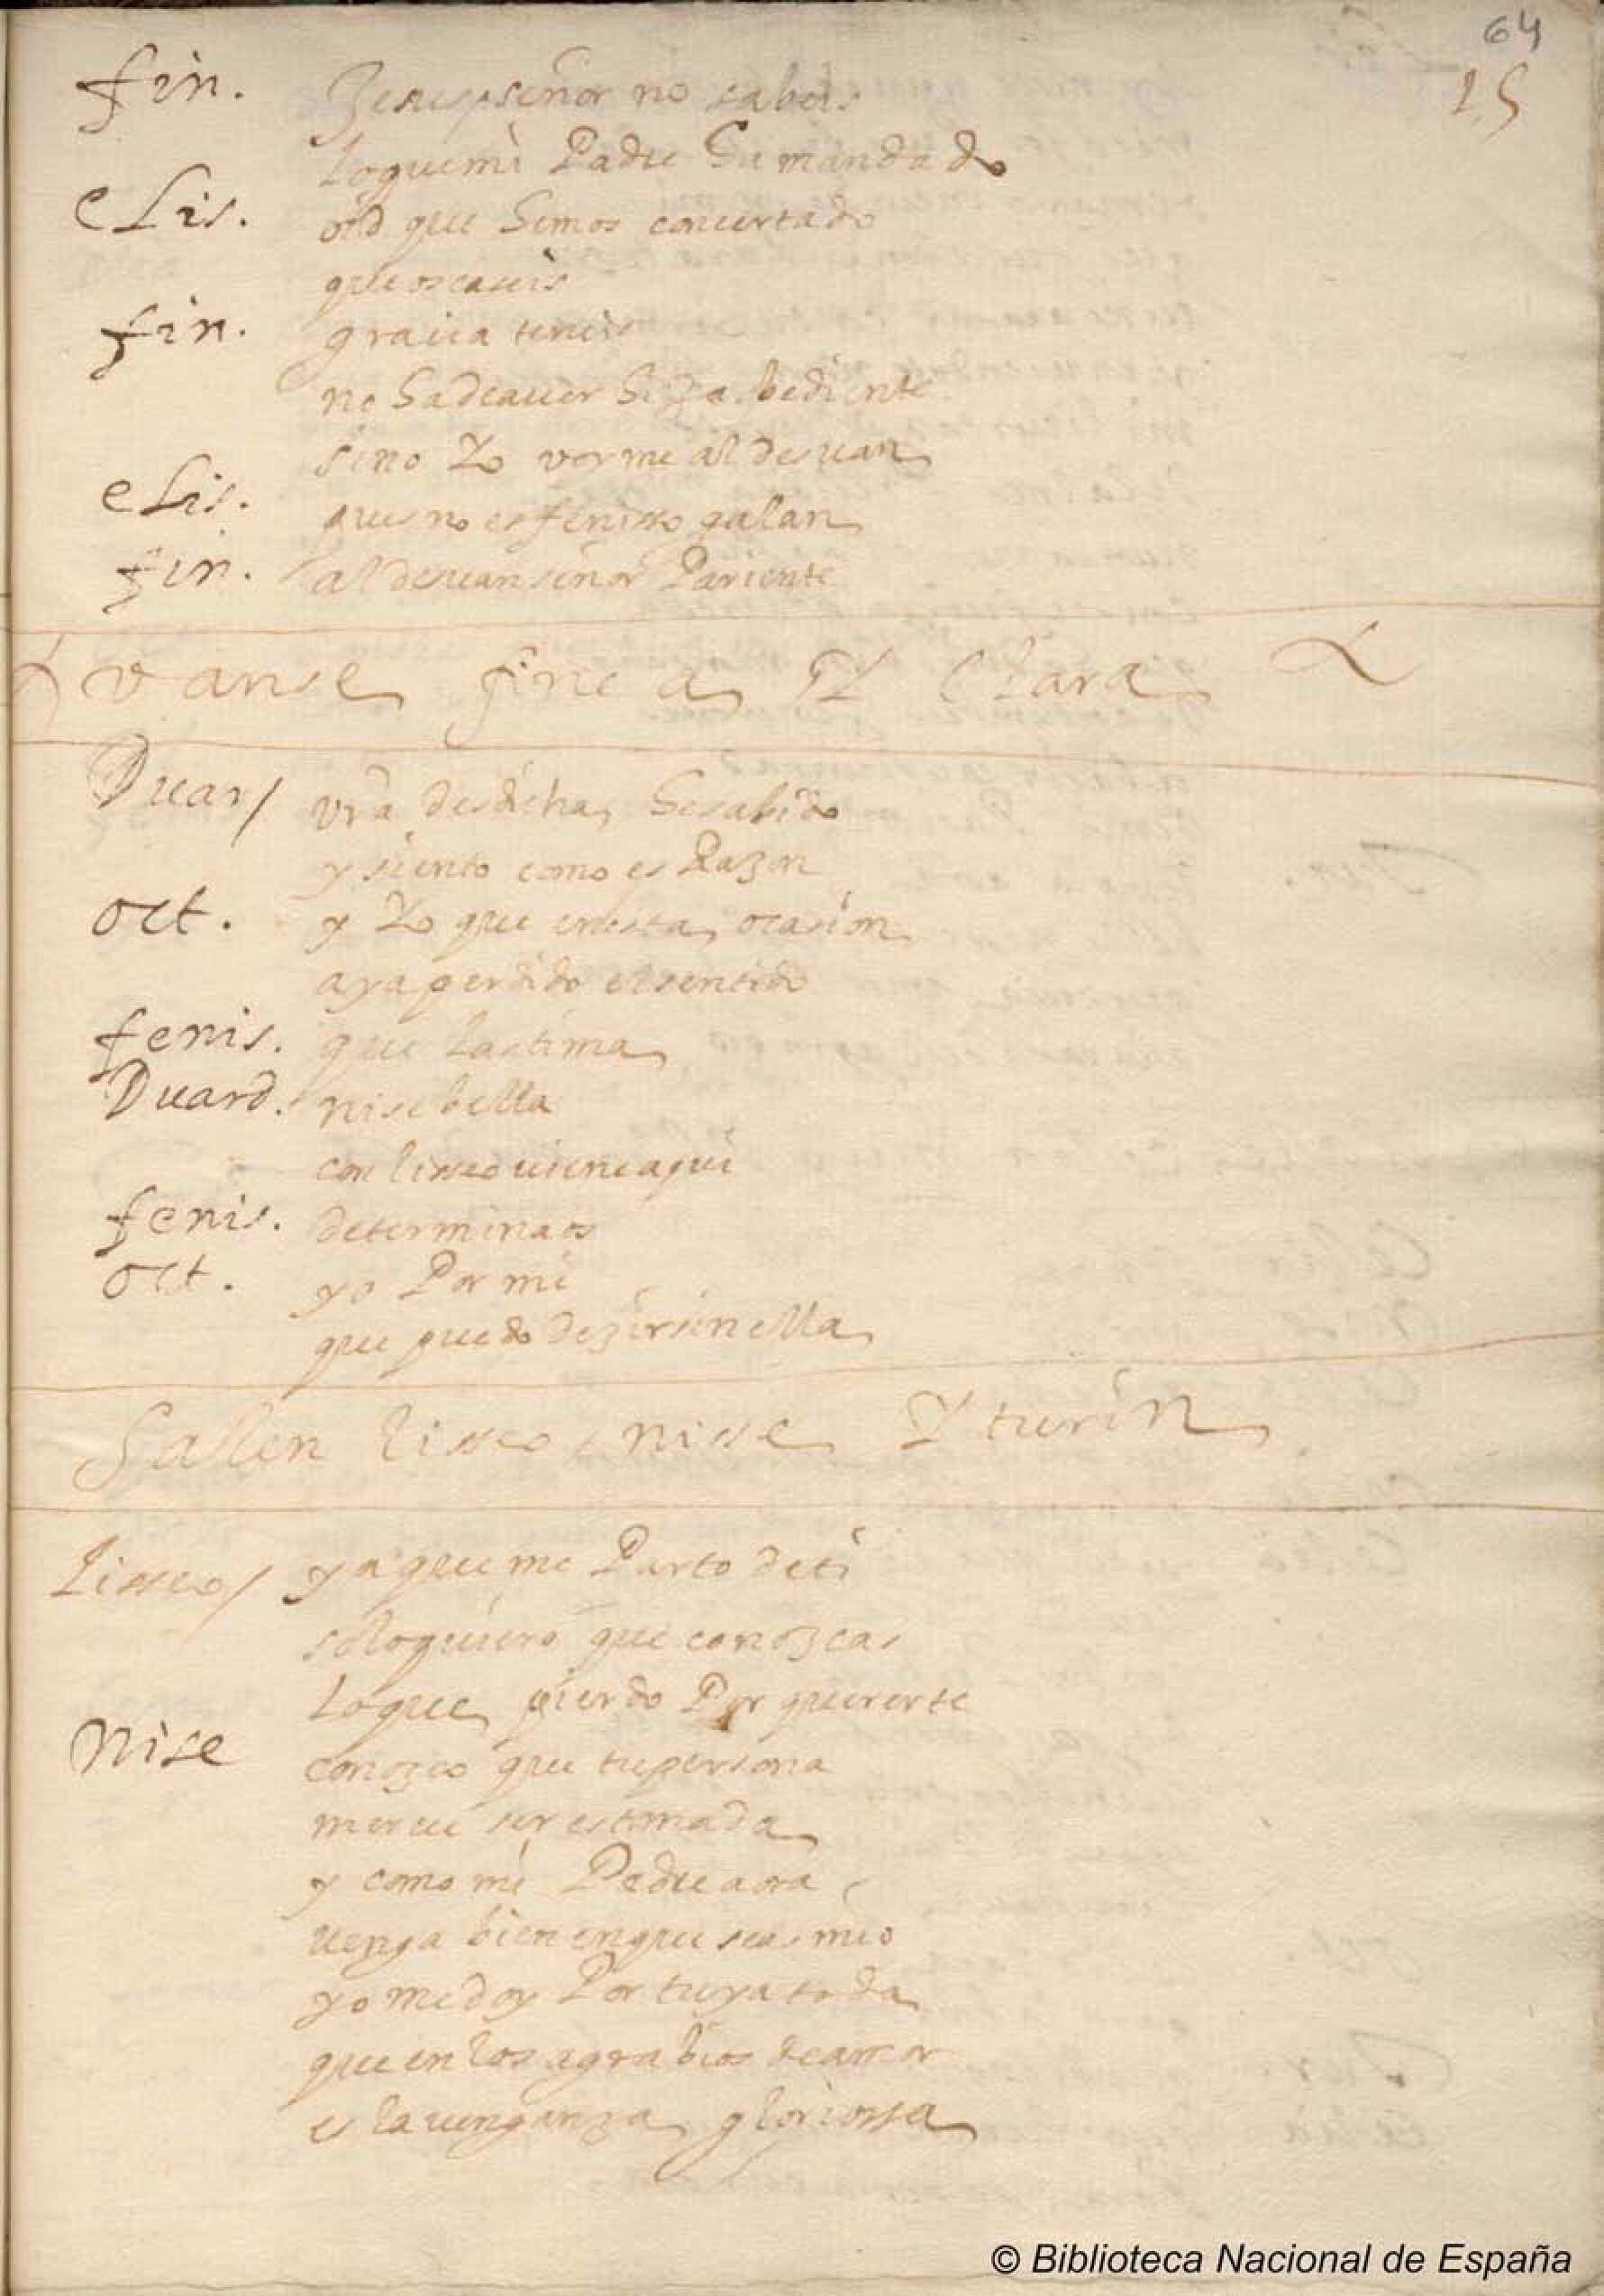 64
25
fin. señor no sabeis
loque mi Padre Ha mandado
eLis. oid que Hemos concertado
que os caseis
fin. gracia teneis
no Ha de auer Hija obediente
sino Yo yrme al desuan
eLis. que no es fenisso galan
fin. al desuan señor Pariente
vanse finea Y Clara
Duar/ vrā desdicha, He sabido
y siento como es Razon
oct. y Yo que en esta, ocasion
aya perdido el sentido
fenis. que lastima
Duard. nise bella
con lisseo viene aqui
fenis. determinaos
oct. yo Por mi
que puedo dezir sin ella
Salen lisseo, nisse Y turin
Lisseo/ ya que me Parto de ti
solo quiero que conozcas
Loque, pierdo Por quererte
Nise conozco que tu persona
mereçe ser estimada
y como mi Padre aora
venga bien en que seas mio
yo me doy Por tuya toda
que en los agrabios de amor
es la venganza, gloriossa
© Biblioteca Nacional de España